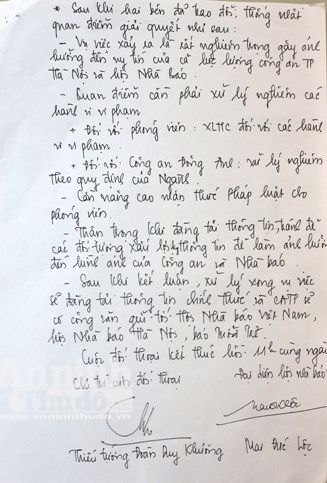 * Sau khi hai bên đã trao đổi, thống nhất
quan điểm giải quyết như sau:
- Vụ việc xảy ra là rất nghiêm trọng gây ảnh
hưởng đến uy tín của cả lực lượng công an TP
Hà Nội và hội Nhà báo.
- Quan điểm cần phải xử lý nghiêm các
hành vi vi phạm
+ Đối với phóng viên: XLHC đối với các hành
vi vi phạm.
+ Đối với Công an Đông Anh: xử lý nghiêm
theo quy định của Ngành.
- Cần nâng cao nhận thức pháp luật cho
phóng viên.
- Thận trọng khi đăng tải thông tin, tránh để
các đối tượng xấu thông tin để làm ảnh hưởng
đến hình ảnh của Công an và Nhà báo.
- Sau khi kết luận, xử lý xong vụ việc
sẽ đăng tải thông tin chính thức và CATP sẽ
có công văn gửi tới hội Nhà báo Việt Nam,
hội Nhà báo Hà Nội, báo
Cuộc đối thoại kết thúc hồi 11h cùng ngày
Chủ trì cuộc đối thoại
Đại diện hội nhà báo
An ninh
Thủ đô
www.anninhthudo.vn
Thiếu tướng Đoàn Duy Khương
Mai Đức Lộc